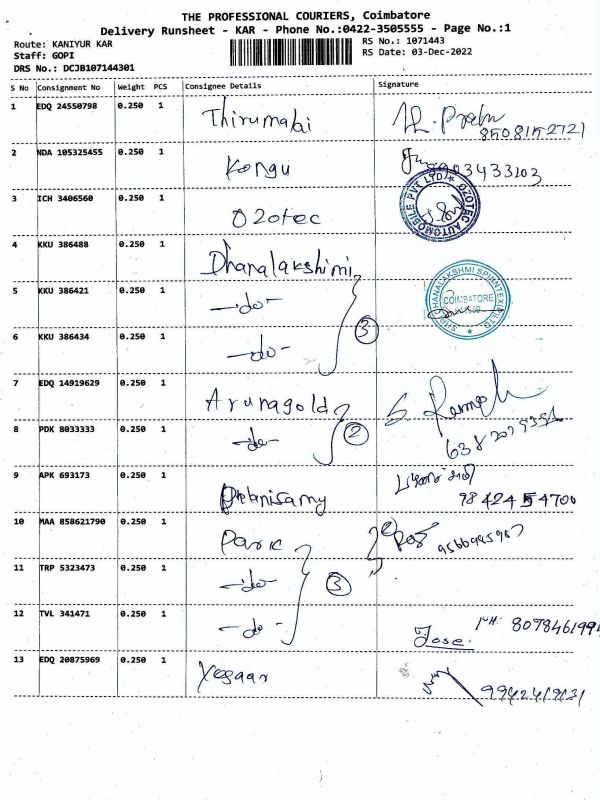 THE PROFESSIONAL COURIERS, Coimbatore
Delivery Runsheet - KAR - Phone No.:0422-3505555 - Page No.:1
Route: KANIYUR KAR
Staff: GOPI
DRS No.: DCJB107144301
RS No.: 1071443
RS Date: 03-Dec-2022
S No Consignment No Weight PCS Consignee Details Signature
1 EDQ 24550798 0.250 1 Thirumalai
8508152721
2 NDA 105325455 0.250 1 Kongu
3 ICH 3406560 0.250 1 Ozotec
OZOTEC AUTOMOBILE PVT LTD
4 KKU 386488 0.250 1 Dhanalakshimi
5 KKU 386421 0.250 1 -do-
COIMBATORE
6 KKU 386434 0.250 1 -do- 3
7 EDQ 14919629 0.250 1 Arunagold S. Ramesh
8 PDK 8033333 0.250 1 -do- 2
9 APK 693173 0.250 1 Palanisamy
98424 54700
10 MAA 858621790 0.250 1 Park 2
9566945987
11 TRP 5323473 0.250 1 -do- 3
12 TVL 341471 0.250 1 -do- Jose. PH: 807846199
13 EDQ 20875969 0.250 1 Yegaar